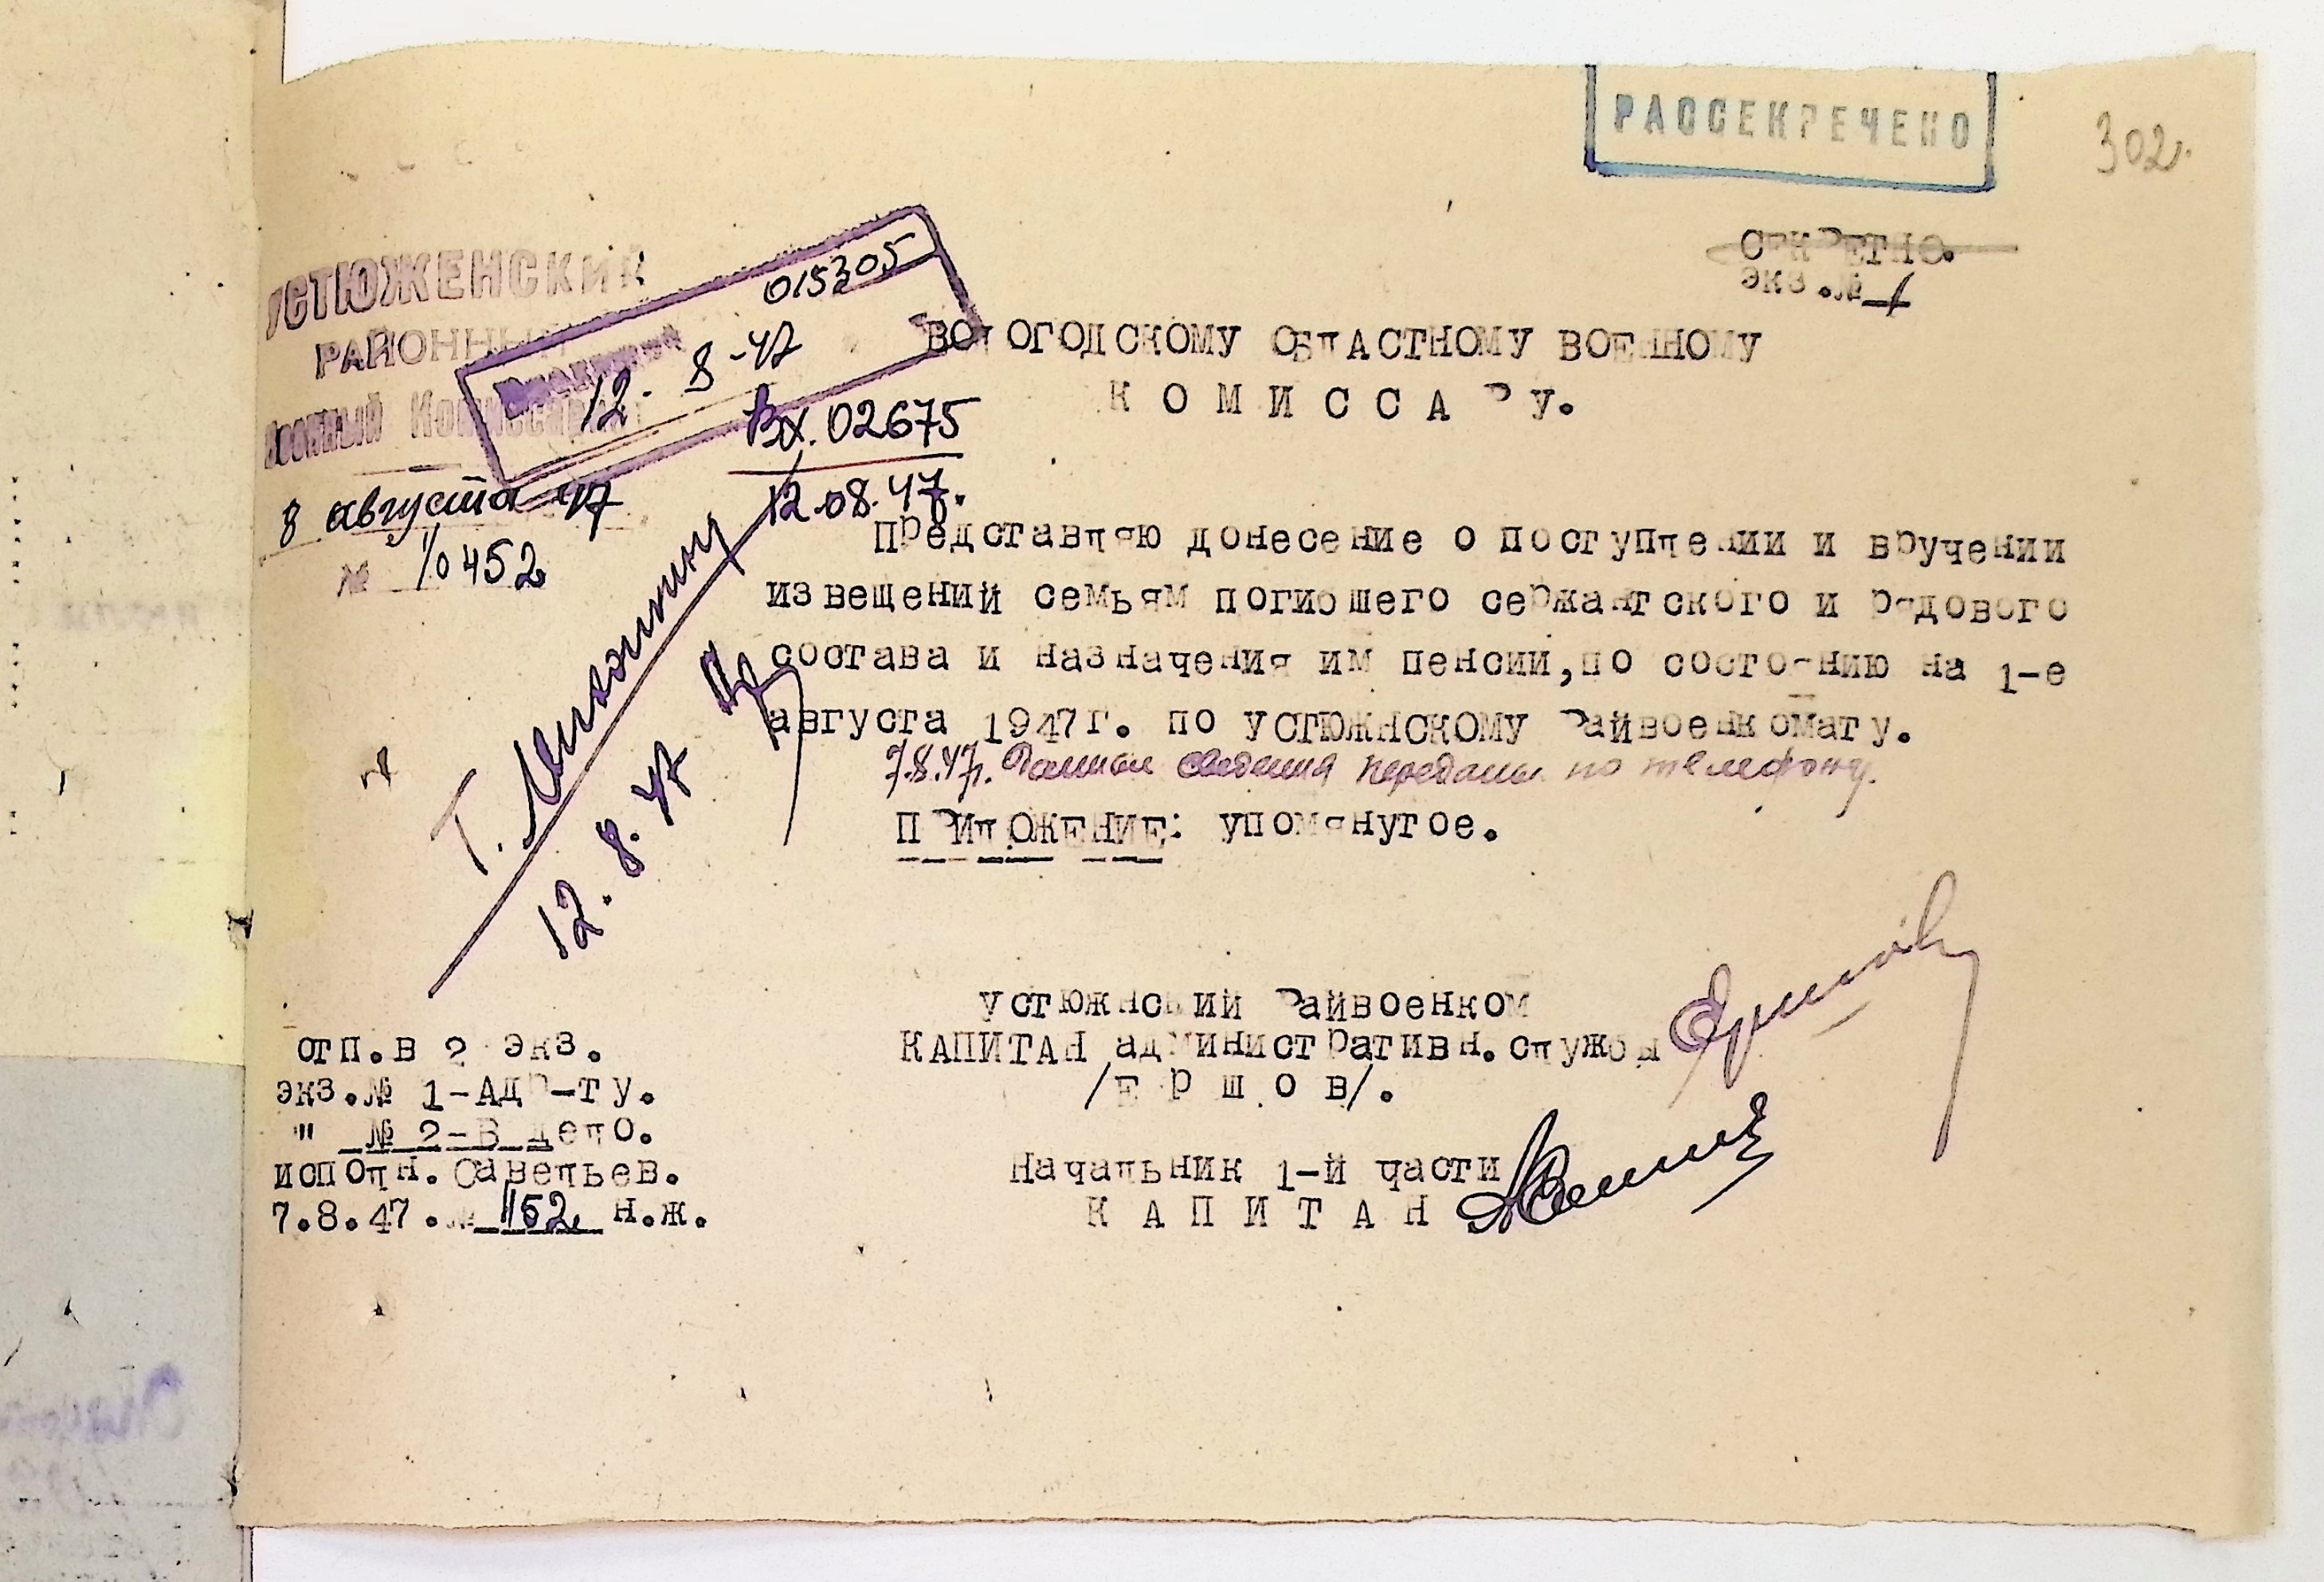 РАССЕКРЕЧЕНО
302.
СЕКРЕТНО.
экз.№ 1
УСТЮЖЕНСКИЙ
РАЙОННЫЙ
Военный Комиссариат
8 августа 47
№ 1/0452
015305
12-8-47
Вх. 02675
12.08.47.
ВОЛОГОДСКОМУ ОБЛАСТНОМУ ВОЕННОМУ
КОМИССАРУ.
Представляю донесение о поступлении и вручении
извещений семьям погибшего сержантского и рядового
состава и назначения им пенсии,по состоянию на 1-е
августа 1947г. по УСТЮЖНСКОМУ Райвоенкомату.
7.8.47г. Данные сведения переданы по телефону.
ПРИЛОЖЕНИЕ: упомянутое.
Т.
12.8.47
УСТЮЖНСКИЙ Райвоенком
КАПИТАН административн.службы
/Е р ш о в/.
Начальник 1-й части
КАПИТАН
отп.в 2 экз.
экз.№ 1-АДР-ТУ.
" № 2-В дело.
исполн. Савельев.
7.8.47.№ 1152 н.ж.